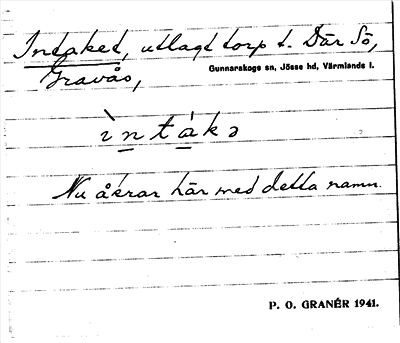 Intaket, utlagt torp t. Där Sö,
Gravås,
Gunnarskogs sn, Jösse hd, Värmlands l.
ìntákə
Nu åkrar här med detta namn.
P. O. GRANÉR 1941.